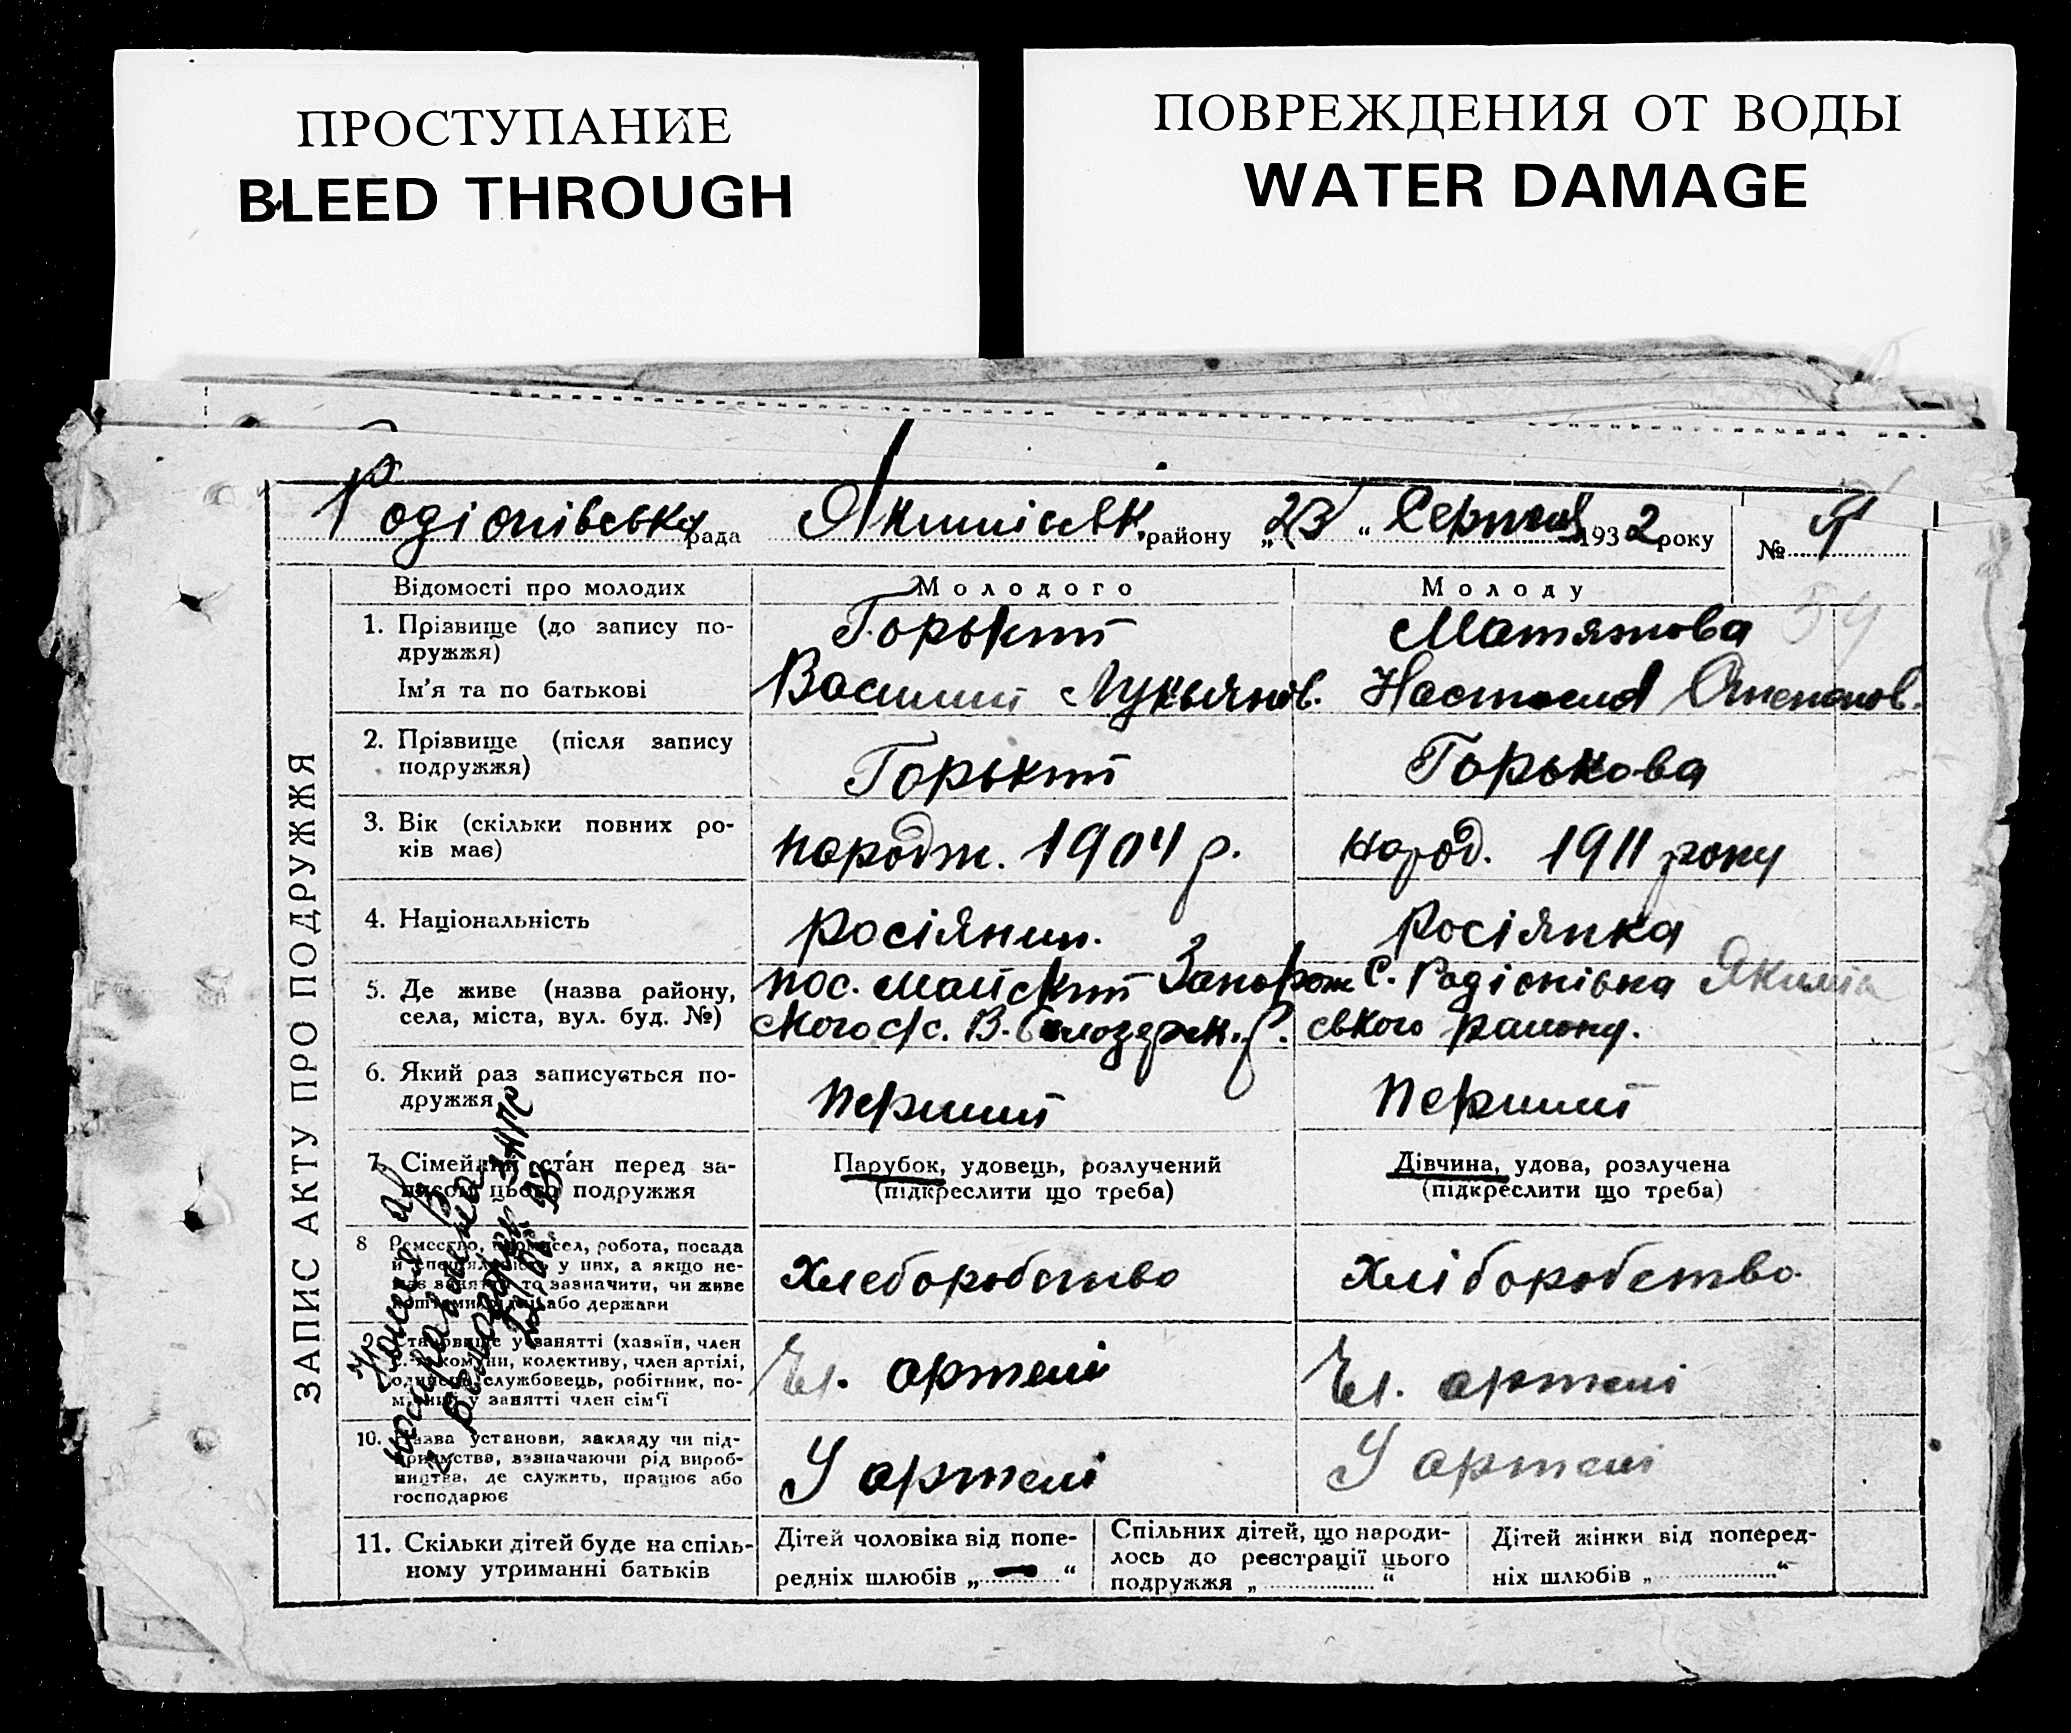 ПРОСТУПАНИЕ
BLEED THROUGH
ПОВРЕЖДЕНИЯ ОТ ВОДЫ
WATER DAMAGE
Родіонівська рада Якимівськ. району „23“ Серпня 1932 року №
ЗАПИС АКТУ ПРО ПОДРУЖЖЯ
Відомості про молодих
Молодого
Молоду
1. Прізвище (до запису по-
дружжя)
Горький
Матякова
Ім'я та по батькові
Василий Лукьянів.
Настасия Степанов.
2. Прізвище (після запису
подружжя)
Горький
Горькова
3. Вік (скільки повних ро-
ків має)
народж. 1904 р.
народ. 1911 року
4. Національність
росіянин.
росіянка
5. Де живе (назва району,
села, міста, вул. буд. №)
пос. Майский Запорож
ского с/с. В. Билозерск. р.
С. Радіонівка Якимів
ського району.
6. Який раз записується по-
дружжя
перший
перший
7. Сімейний стан перед за-
писом цього подружжя
Парубок, удовець, розлучений
(підкреслити що треба)
Дівчина, удова, розлучена
(підкреслити що треба)
8 Ремесство, промисел, робота, посада
й спеціяльність у них, а якщо не-
має заняття, то зазначити, чи живе
або держави
Хлеборобство
Хліборобство.
9. Становище у занятті (хазяїн, член
комуни, колективу, член артілі,
службовець, робітник, по-
у занятті член сім'ї
Чл. артелі
Чл. артелі
10. Назва установи, закладу чи під-
приємства, зазначаючи рід вироб-
ництва, де служить, працює або
господарює
У артелі
У артелі
11. Скільки дітей буде на спіль-
ному утриманні батьків
Дітей чоловіка від попе-
редніх шлюбів „—“
Спільних дітей, що народи-
лось до реєстрації цього
подружжя „ “
Дітей жінки від поперед-
ніх шлюбів „ “